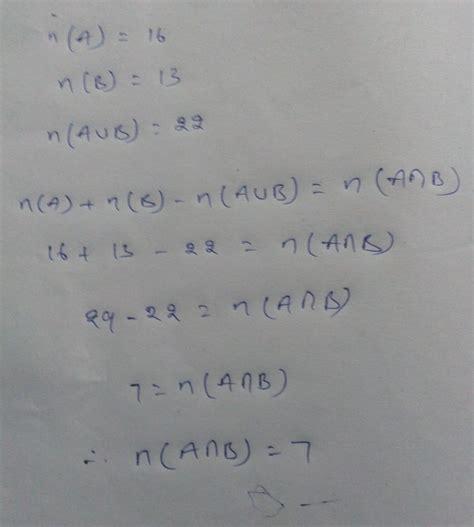 n(A) = 16
n(B) = 13
n(A∪B) = 22
n(A) + n(B) - n(A∪B) = n(A∩B)
16 + 13 - 22 = n(A∩B)
29 - 22 = n(A∩B)
7 = n(A∩B)
∴ n(A∩B) = 7